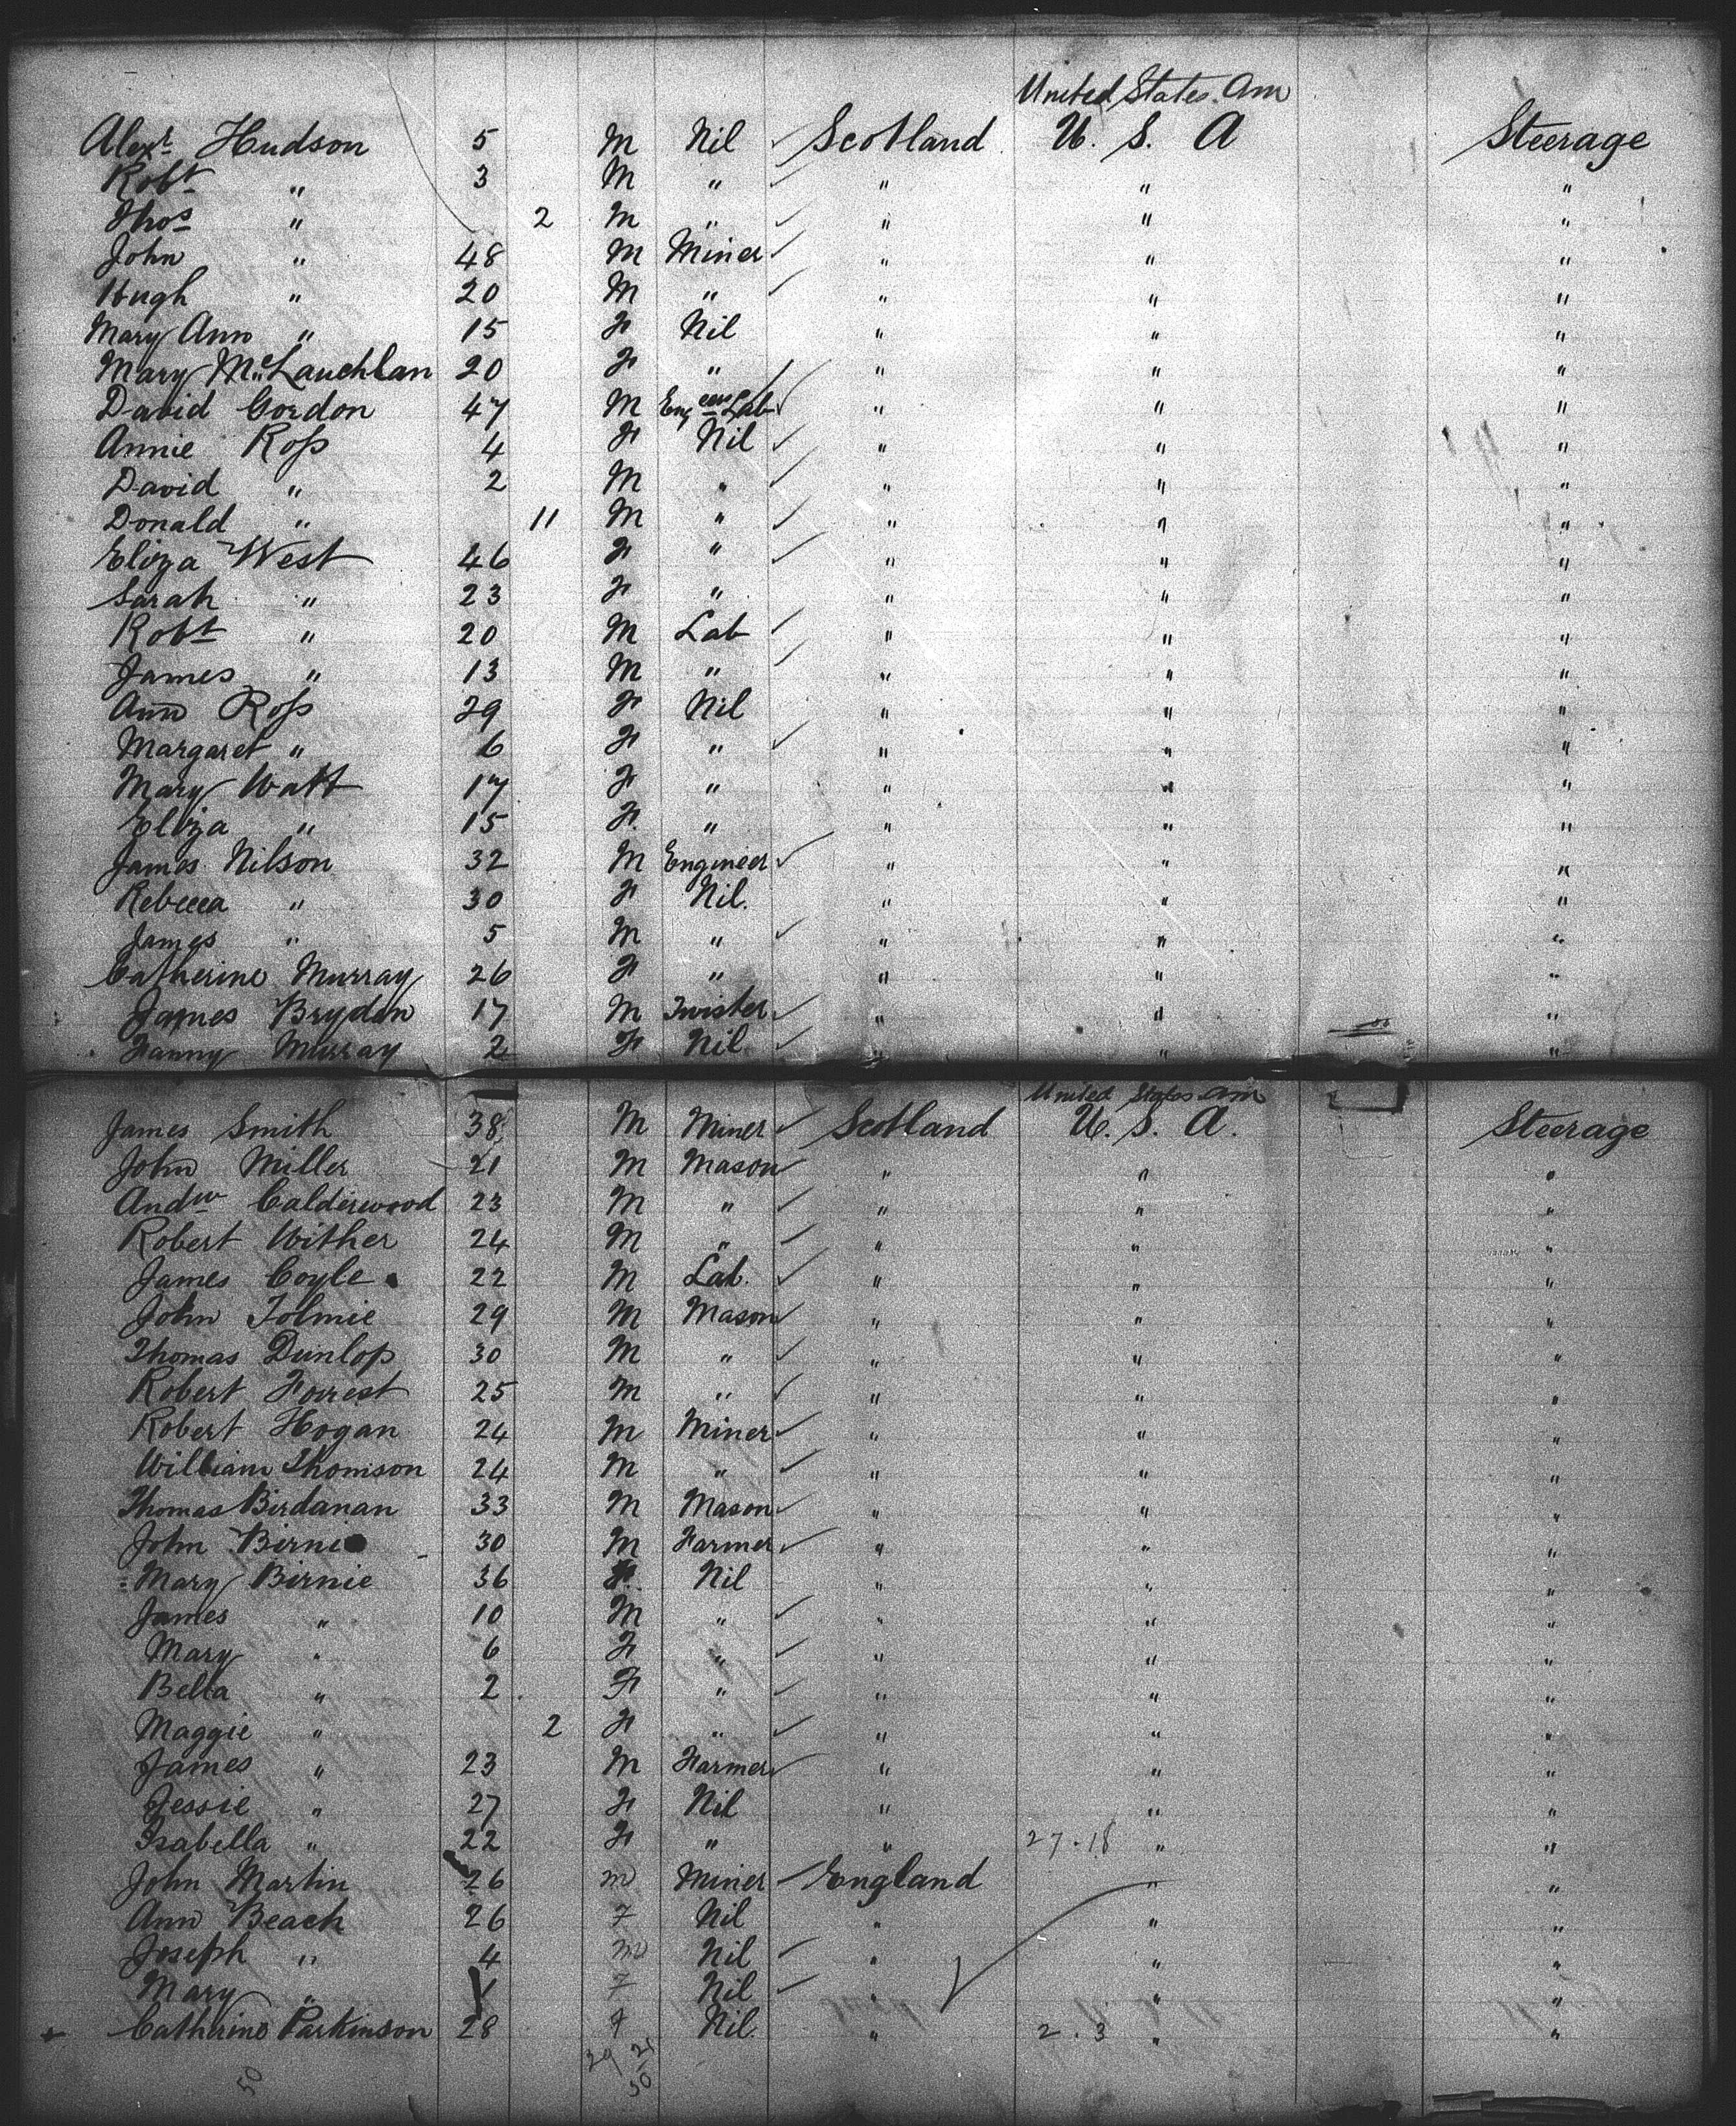 United States. Am
Alexr Hudson 5 M Nil Scotland U. S. A Steerage
Robt " 3 M " " " "
Thos " 2 M " " " "
John " 48 M Miner " " "
Hugh " 20 M " " " "
Mary Ann " 15 F Nil " " "
Mary McLauchlan 20 F " " " "
David Gordon 47 M Lab " " "
Annie Ross 4 F Nil " " "
David " 2 M " " " "
Donald " 11 M " " " "
Eliza West 46 F " " " "
Sarah " 23 F " " " "
Robt " 20 M Lab " " "
James " 13 M " " " "
Ann Ross 29 F Nil " " "
Margaret " 6 F " " " "
Mary Watt 17 F " " " "
Eliza " 15 F. " " " "
James Nilson 32 M Engineer " " "
Rebecca " 30 F Nil. " " "
James " 5 M " " " "
Catherine Murray 26 F " " " "
James Brydon 17 M Twister " " "
Fanny Murray 2 F Nil " " "
United States Am
James Smith 38 M Miner Scotland U. S. A. Steerage
John Miller 21 M Mason " " "
Andw Calderwood 23 M " " " "
Robert Wither 24 M " " " "
James Coyle 22 M Lab. " " "
John Tolmie 29 M Mason " " "
Thomas Dunlop 30 M " " " "
Robert Forrest 25 M " " " "
Robert Hogan 24 M Miner " " "
William Thomson 24 M " " " "
Thomas Birdanan 33 M Mason " " "
John Birnie 30 M Farmer " " "
Mary Birnie 36 F. Nil " " "
James " 10 M " " " "
Mary " 6 F " " " "
Bella " 2 F " " " "
Maggie " 2 F " " " "
James " 23 M Farmer " " "
Jessie " 27 F Nil " " "
Isabella " 22 F " " 27.18 " "
John Martin 26 m Miner England " "
Ann Beach 26 F Nil " " "
Joseph " 4 m Nil " " "
Mary " 1 F Nil " " "
Catherine Parkinson 28 F Nil. " 2.3 " "
29 21
50 50